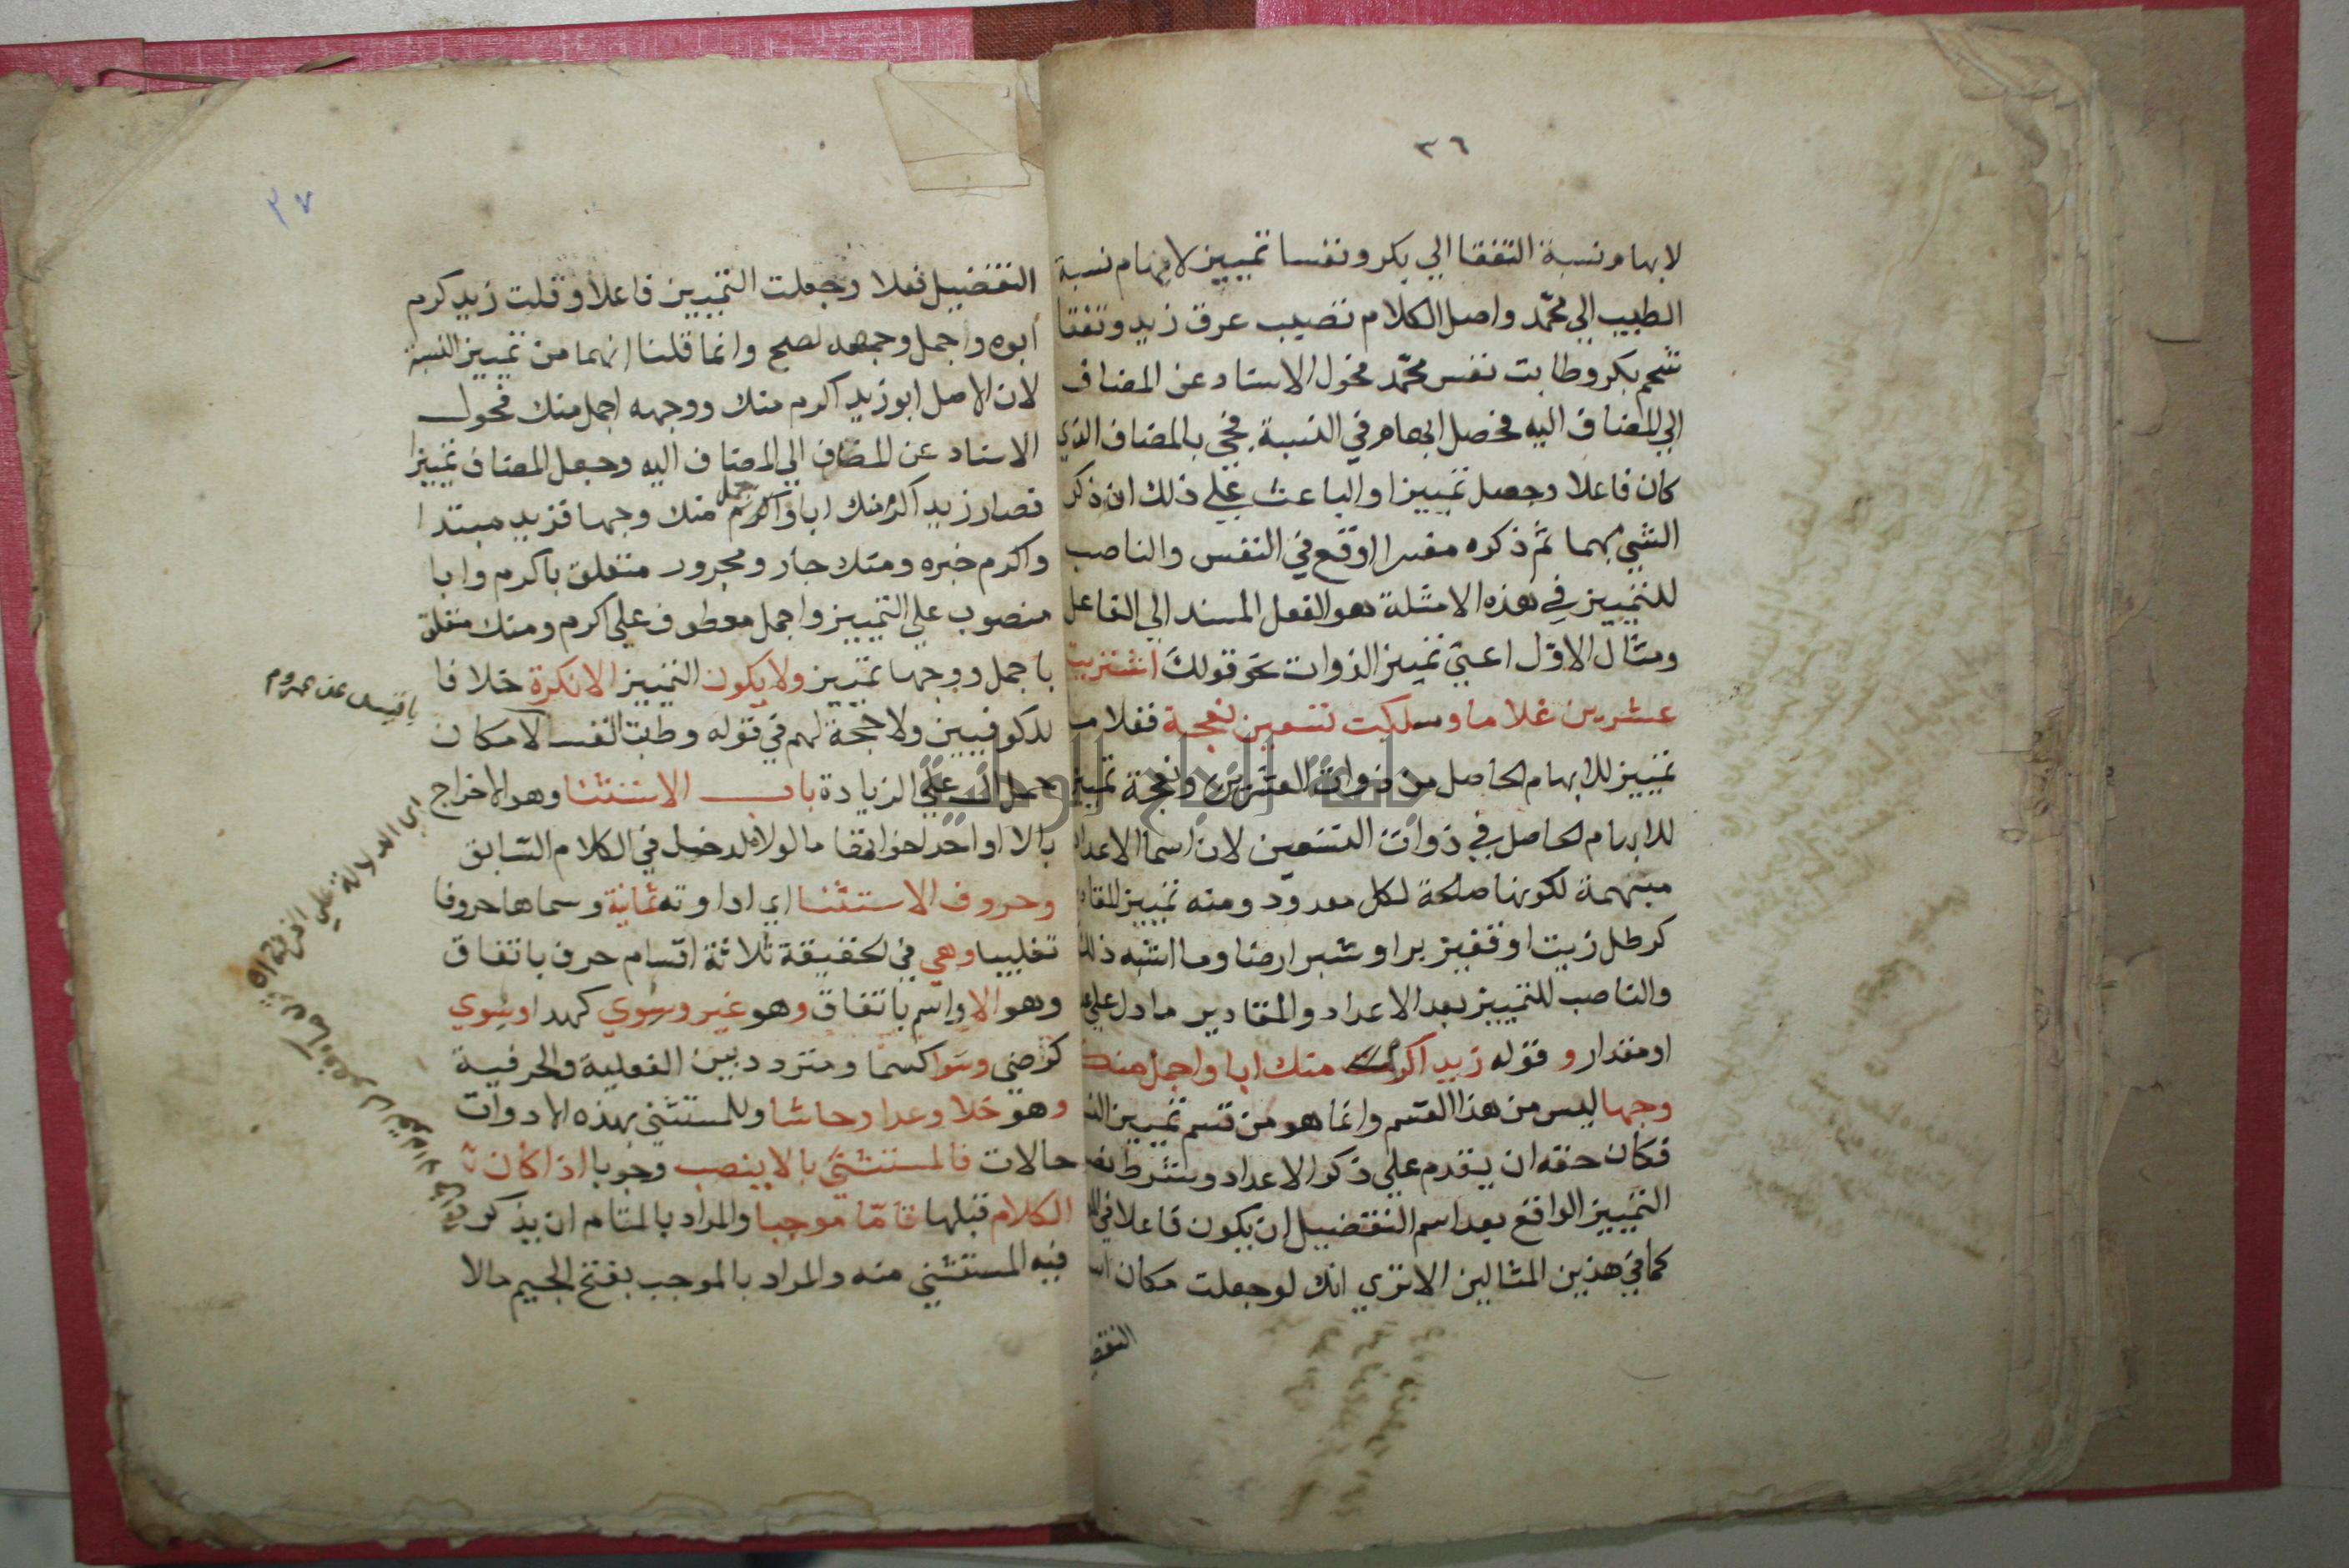 ٣٦
لابهام نسبة التفقا الي بكر ونفسا تمييز لابهام نسبة
الطيب الي محمّد واصل الكلام تصبب عرق زيد وتفقا
شحم بكر وطابت نفس محمّد فحول الاسناد عن المضاف
الي المضاف اليه فحصل ابهام في النسبة فجي بالمضاف الذي
كان فاعلا وجعل تمييزا والباعث علي ذلك ان ذكر
الشي مبهما ثم ذكره مفسرا اوقع في النفس والناصب
للتمييز في هذه الامثلة هو الفعل المسند الي الفاعل
ومثال الاوّل اعني تمييز الذوات نحو قولك اشتريت
عشرين غلاما وملكت تسعين نعجة فغلاما
تمييز للابهام الحاصل من ذوات العشرين ونعجة تمييز
للابهام الحاصل في ذوات التسعين لان اسما الاعداد
مبهمة لكونها صالحة لكل معدود ومنه تمييز المقادير
كرطل زيتا وقفيز برا وشبر ارضا وما اشبه ذلك
والناصب للتمييز بعد الاعداد والمقادير ما دل علي
او مقدار و قوله زيد اكرم منك ابا واجمل منك
وجها ليس من هذا القسم وانما هو من قسم تمييز النسبة
فكان حقه ان يقدم علي ذكر الاعداد وشرط نصب
التمييز الواقع بعد اسم التفضيل ان يكون فاعلا في
كما في هذين المثالين الا تري انك لو جعلت مكان اسم
التفضيل
٣٧
التفضيل فعلا وجعلت التمييز فاعلا وقلت زيد كرم
ابوه واجمل وجهه لصح وانما قلنا انهما من تمييز النسبة
لان الاصل ابو زيد اكرم منك ووجهه اجمل منك فحول
الاسناد عن المضاف الي المضاف اليه وجعل المضاف تمييزا
فصار زيد اكرم منك ابا واجمل منك وجها فزيد مبتدا
واكرم خبره ومنك جار ومجرور متعلق باكرم وابا
منصوب علي التمييز واجمل معطوف علي اكرم ومنك متعلق
باجمل ووجها تمييز ولا يكون التمييز الا نكرة خلافا
للكوفيين ولا حجة لهم في قوله وطبت النفس لامكان
حمل ال علي الزيادة باب الاستثنا وهو الاخراج
بالا او احد اخواتها ما لولاه لدخل في الكلام السّابق
وحروف الاستثنا اي ادواته ثمانية وسماها حروفا
تغليبا وهي في الحقيقة ثلاثة اقسام حرف باتفاق
وهو الا واسم باتفاق وهو غير وسوي كهدا وسوي
كرضي وسوا كسما ومتردد بين الفعلية والحرفية
وهو خلا وعدا وحاشا وللمستثني بهذه الادوات
حالات فالمستثني بالا ينصب وجوبا اذا كان
الكلام قبلها تامّا موجبا والمراد بالتام ان يذكر
فيه المستثني منه والمراد بالموجب بفتح الجيم ما لا
يا قيس عن عمرو م
اي الدلالة علي
جامعة النجاح الوطنية